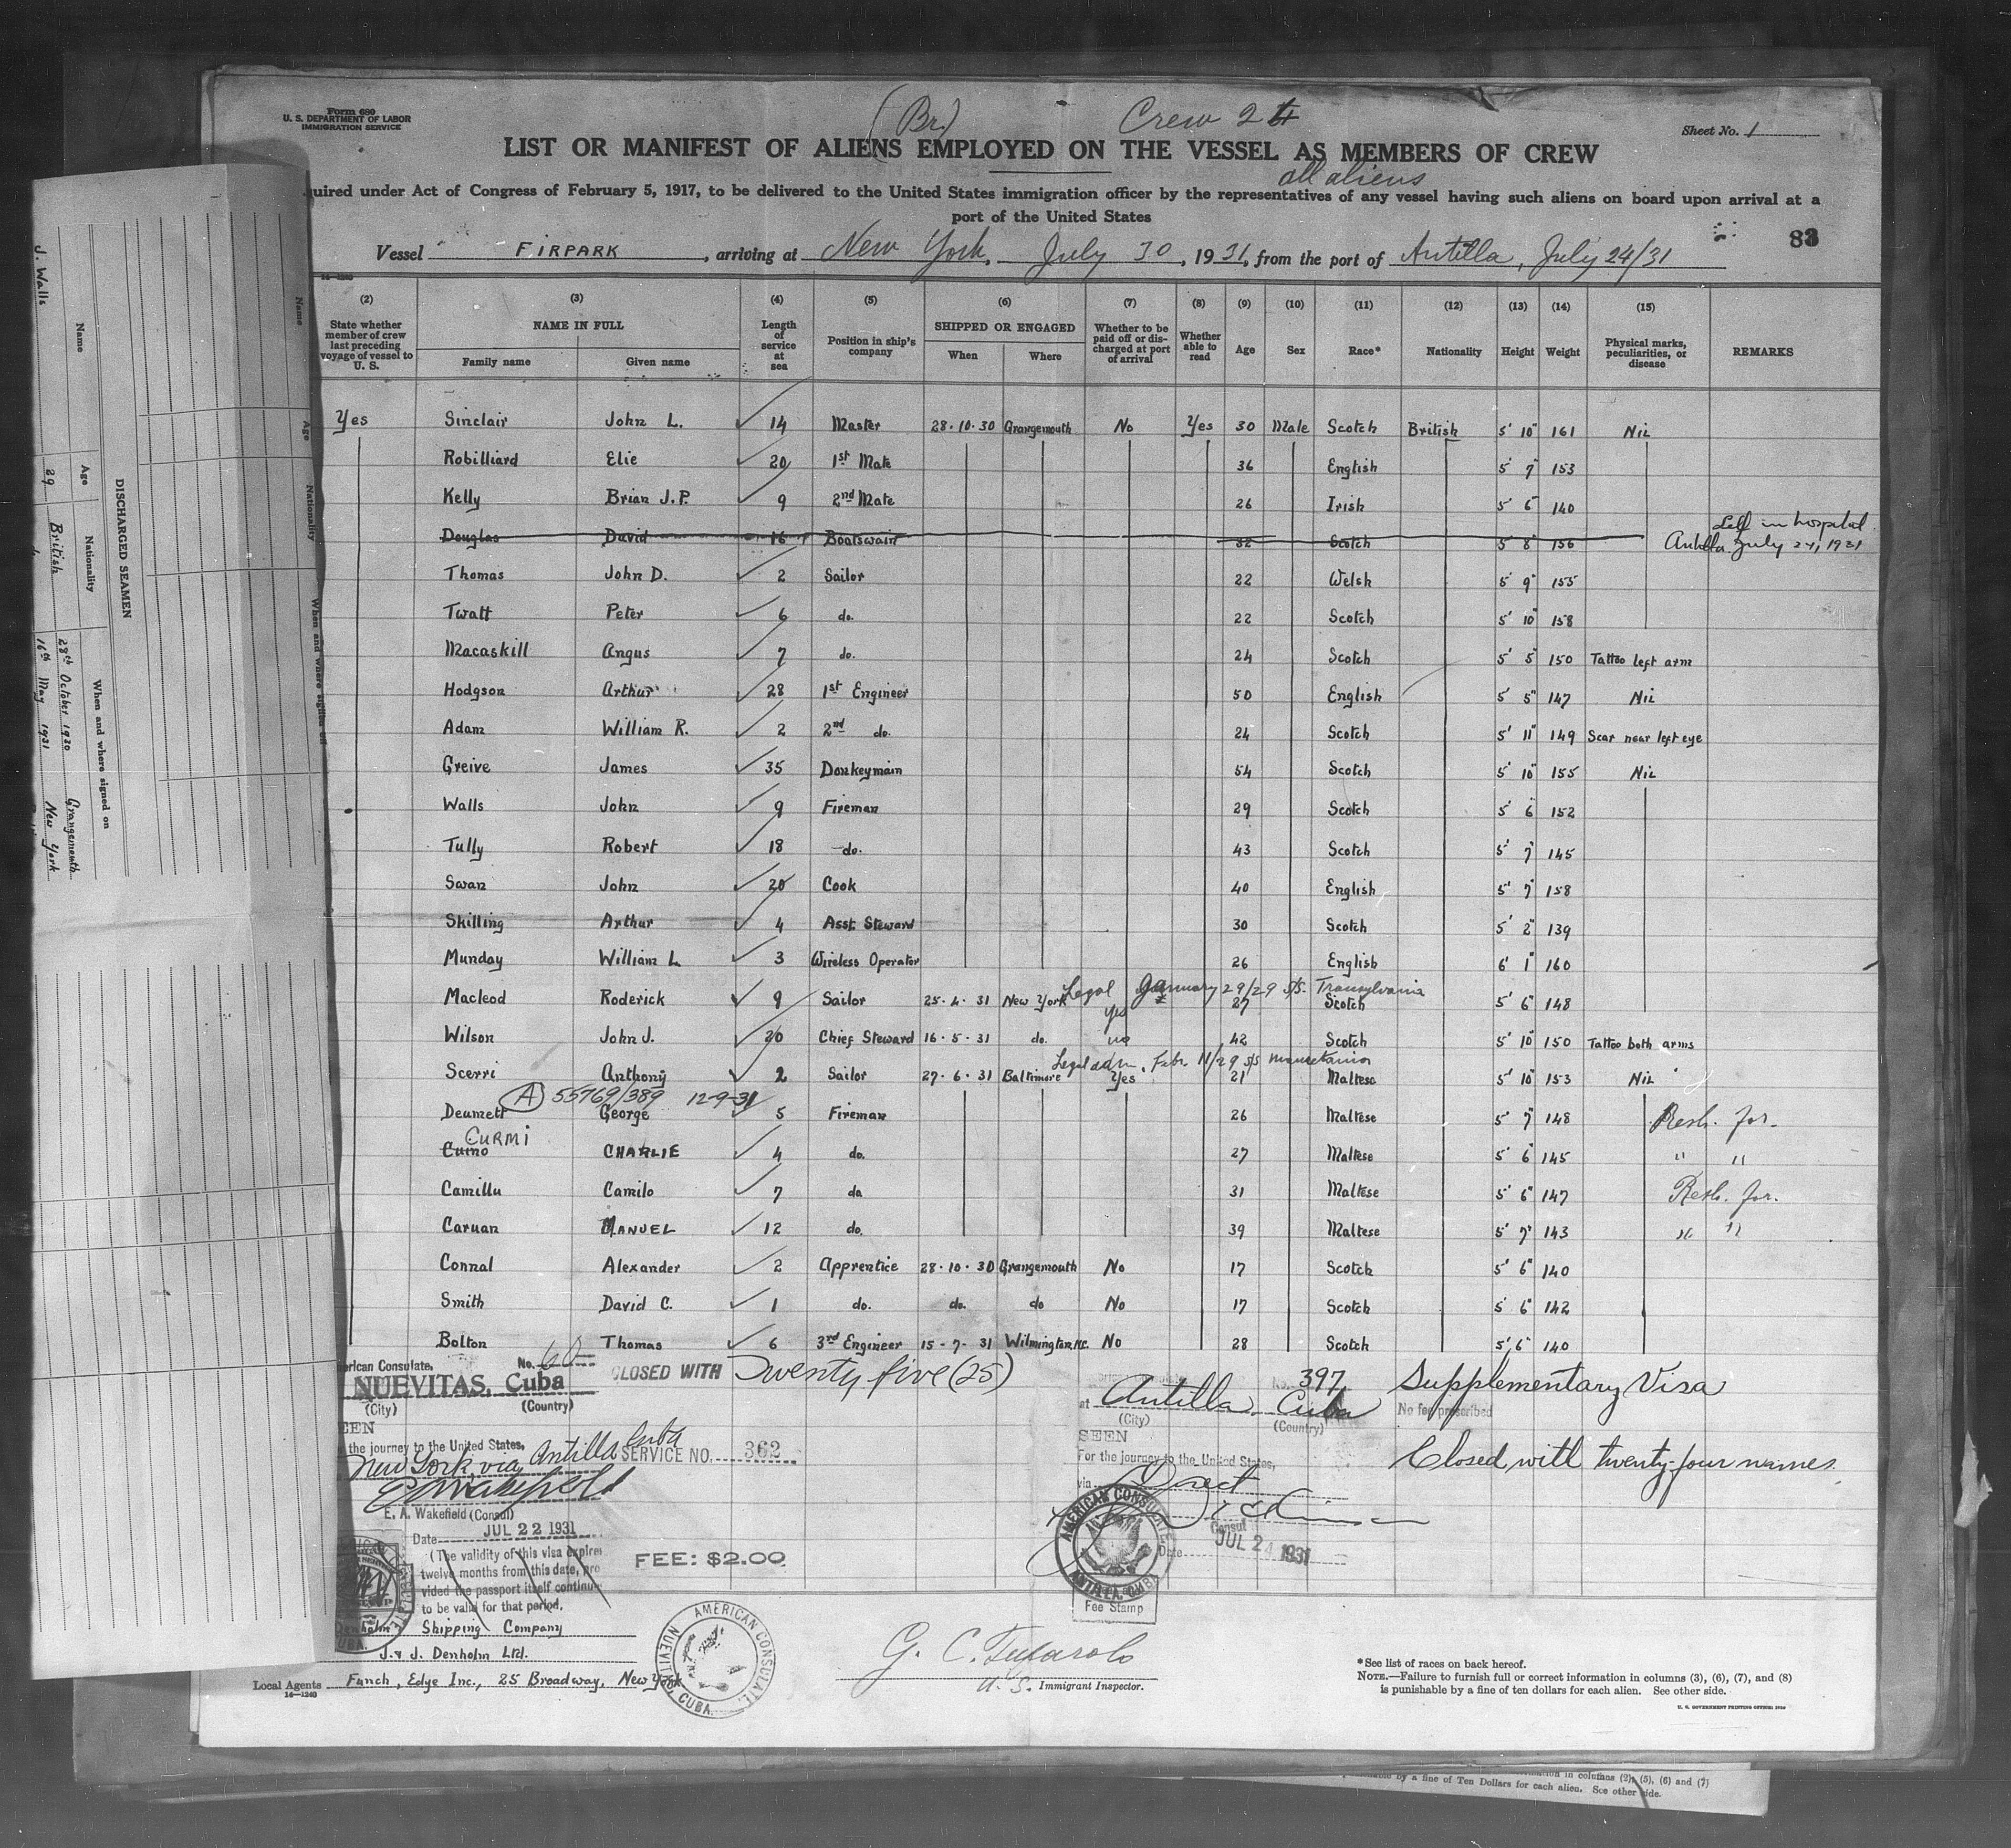 Form 680
U. S. DEPARTMENT OF LABOR
IMMIGRATION SERVICE
(Br.) Crew 24
Sheet No. 1
LIST OR MANIFEST OF ALIENS EMPLOYED ON THE VESSEL AS MEMBERS OF CREW
all aliens
quired under Act of Congress of February 5, 1917, to be delivered to the United States immigration officer by the representatives of any vessel having such aliens on board upon arrival at a
port of the United States
83
Vessel FIRPARK, arriving at New York, July 30, 1931, from the port of Antilla, July 24/31
14—1240
(2) (3) (4) (5) (6) (7) (8) (9) (10) (11) (12) (13) (14) (15)
State whether member of crew last preceding voyage of vessel to U. S. NAME IN FULL Family name Given name Length of service at sea Position in ship's company SHIPPED OR ENGAGED When Where Whether to be paid off or discharged at port of arrival Whether able to read Age Sex Race* Nationality Height Weight Physical marks, peculiarities, or disease REMARKS
Yes Sinclair John L. 14 Master 28.10.30 Grangemouth No Yes 30 Male Scotch British 5' 10" 161 Nil
Robilliard Elie 20 1st Mate 36 English 5' 7" 153
Kelly Brian J.P. 9 2nd Mate 26 Irish 5' 6" 140
Douglas David 16 Boatswain 32 Scotch 5' 8" 156 Left in hospital Antilla July 24, 1931
Thomas John D. 2 Sailor 22 Welsh 5' 9" 155
Twatt Peter 6 do. 22 Scotch 5' 10" 158
Macaskill Angus 7 do. 24 Scotch 5' 5" 150 Tattoo left arm
Hodgson Arthur 28 1st Engineer 50 English 5' 5" 147 Nil
Adam William R. 2 2nd do. 24 Scotch 5' 11" 149 Scar near left eye
Greive James 35 Donkeyman 54 Scotch 5' 10" 155 Nil
Walls John 9 Fireman 29 Scotch 5' 6" 152
Tully Robert 18 do. 43 Scotch 5' 7" 145
Swan John 20 Cook 40 English 5' 7" 158
Skilling Arthur 4 Asst. Steward 30 Scotch 5' 2" 139
Munday William L. 3 Wireless Operator 26 English 6' 1" 160
Legal January 29/29 S/S. Transylvania
Macleod Roderick 9 Sailor 25.4.31 New York Yes 27 Scotch 5' 6" 148
Wilson John J. 20 Chief Steward 16.5.31 do. no 42 Scotch 5' 10" 150 Tattoo both arms
Legal adm. Febr. 11/29 S/S Mauretania
Scerri Anthony 2 Sailor 27.6.31 Baltimore Yes 21 Maltese 5' 10" 153 Nil
(A) 55769/389 12-9-31
Deumett George 5 Fireman 26 Maltese 5' 7" 148 Resh. for.
CURMI
Cumo CHARLIE 4 do. 27 Maltese 5' 6" 145 " "
Camillu Camilo 7 do 31 Maltese 5' 6" 147 Resh. for.
Caruan MANUEL 12 do. 39 Maltese 5' 7" 143 " "
Connal Alexander 2 Apprentice 28.10.30 Grangemouth No 17 Scotch 5' 6" 140
Smith David C. 1 do. do. do No 17 Scotch 5' 6" 142
Bolton Thomas 6 3rd Engineer 15-7-31 Wilmington N.C. No 28 Scotch 5' 6" 140
rican Consulate, No. 60
NUEVITAS, Cuba
(City) (Country)
CLOSED WITH Twenty five (25)
EEN
the journey to the United States,
New York, via Antilla Cuba
SERVICE NO. 362
E. A. Wakefield (Consul)
Date JUL 22 1931
(The validity of this visa expires
twelve months from this date, pro
vided the passport itself continue
to be valid for that period.
FEE: $2.00
397
at Antilla, Cuba
(City) (Country)
SEEN
For the journey to the United States,
via Direct
Consul
Date JUL 24 1931
AMERICAN CONSULATE
ANTILLA, CUBA
Fee Stamp
Supplementary Visa
No fee prescribed
Closed with twenty-four names.
Denholm Shipping Company
J. & J. Denholm Ltd.
Local Agents Funch, Edge Inc., 25 Broadway, New York
14—1240
AMERICAN CONSULATE, NUEVITAS, CUBA.
G. C. Tufarolo
U. S. Immigrant Inspector.
*See list of races on back hereof.
NOTE.—Failure to furnish full or correct information in columns (3), (6), (7), and (8)
is punishable by a fine of ten dollars for each alien. See other side.
U. S. GOVERNMENT PRINTING OFFICE: 1930
DISCHARGED SEAMEN
Name Age Nationality When and where signed on
J. Walls 29 British 28th October 1930 Grangemouth
16th May 1931 New York
Name Age Nationality When and where signed on
mation in columns (2), (5), (6) and (7)
by a fine of Ten Dollars for each alien. See other side.